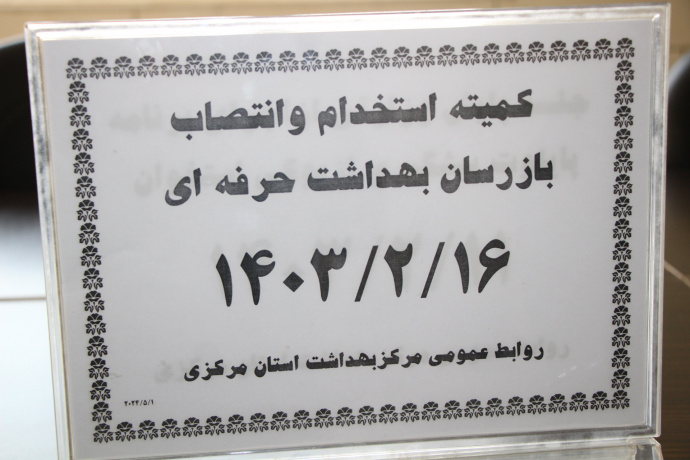 کمیته استخدام وانتصاب
بازرسان بهداشت حرفه ای
۱۴۰۳/۲/۱۶
روابط عمومی مرکزبهداشت استان مرکزی
۲۰۲۴/۵/۱